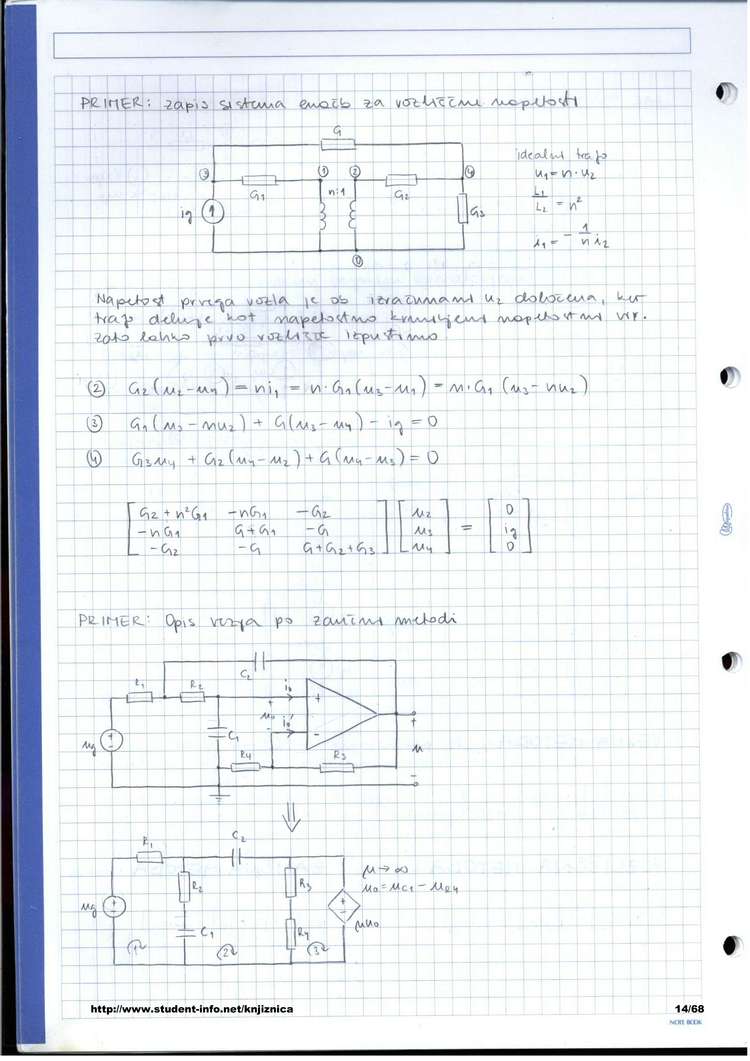 PRIMER: zapis sistema enačb za vozliščne napetosti
G
idealni trafo
③ ① ② ④
u1 = n·u2
n:1
G1 G2
L1/L2 = n²
ig
G3
i1 = -1/n i2
⓪
Napetost prvega vozla je ob izračunani u2 določena, ker
trafo deluje kot napetostno krmiljeni napetostni vir.
zato lahko prvo vozlišče izpustimo
② G2(u2-u4) = ni1 = n·G1(u3-u1) = n·G1(u3-nu2)
③ G1(u3-nu2) + G(u3-u4) - ig = 0
④ G3u4 + G2(u4-u2) + G(u4-u3) = 0
[G2+n²G1 -nG1 -G2] [u2] = [0]
[-nG1 G+G1 -G] [u3] [ig]
[-G2 -G G+G2+G3] [u4] [0]
PRIMER: Opis vezja po zančni metodi
C2
R1 R2 i0
+ +
u0 i0'
- -
+
ug C1
R4 R3 u
-
⇓
R1 C2
μ→∞
R2 R3 u0 = uC1 - uR4
ug
μu0
C1 R4
1 2 3
http://www.student-info.net/knjiznica 14/68
NOTE BOOK